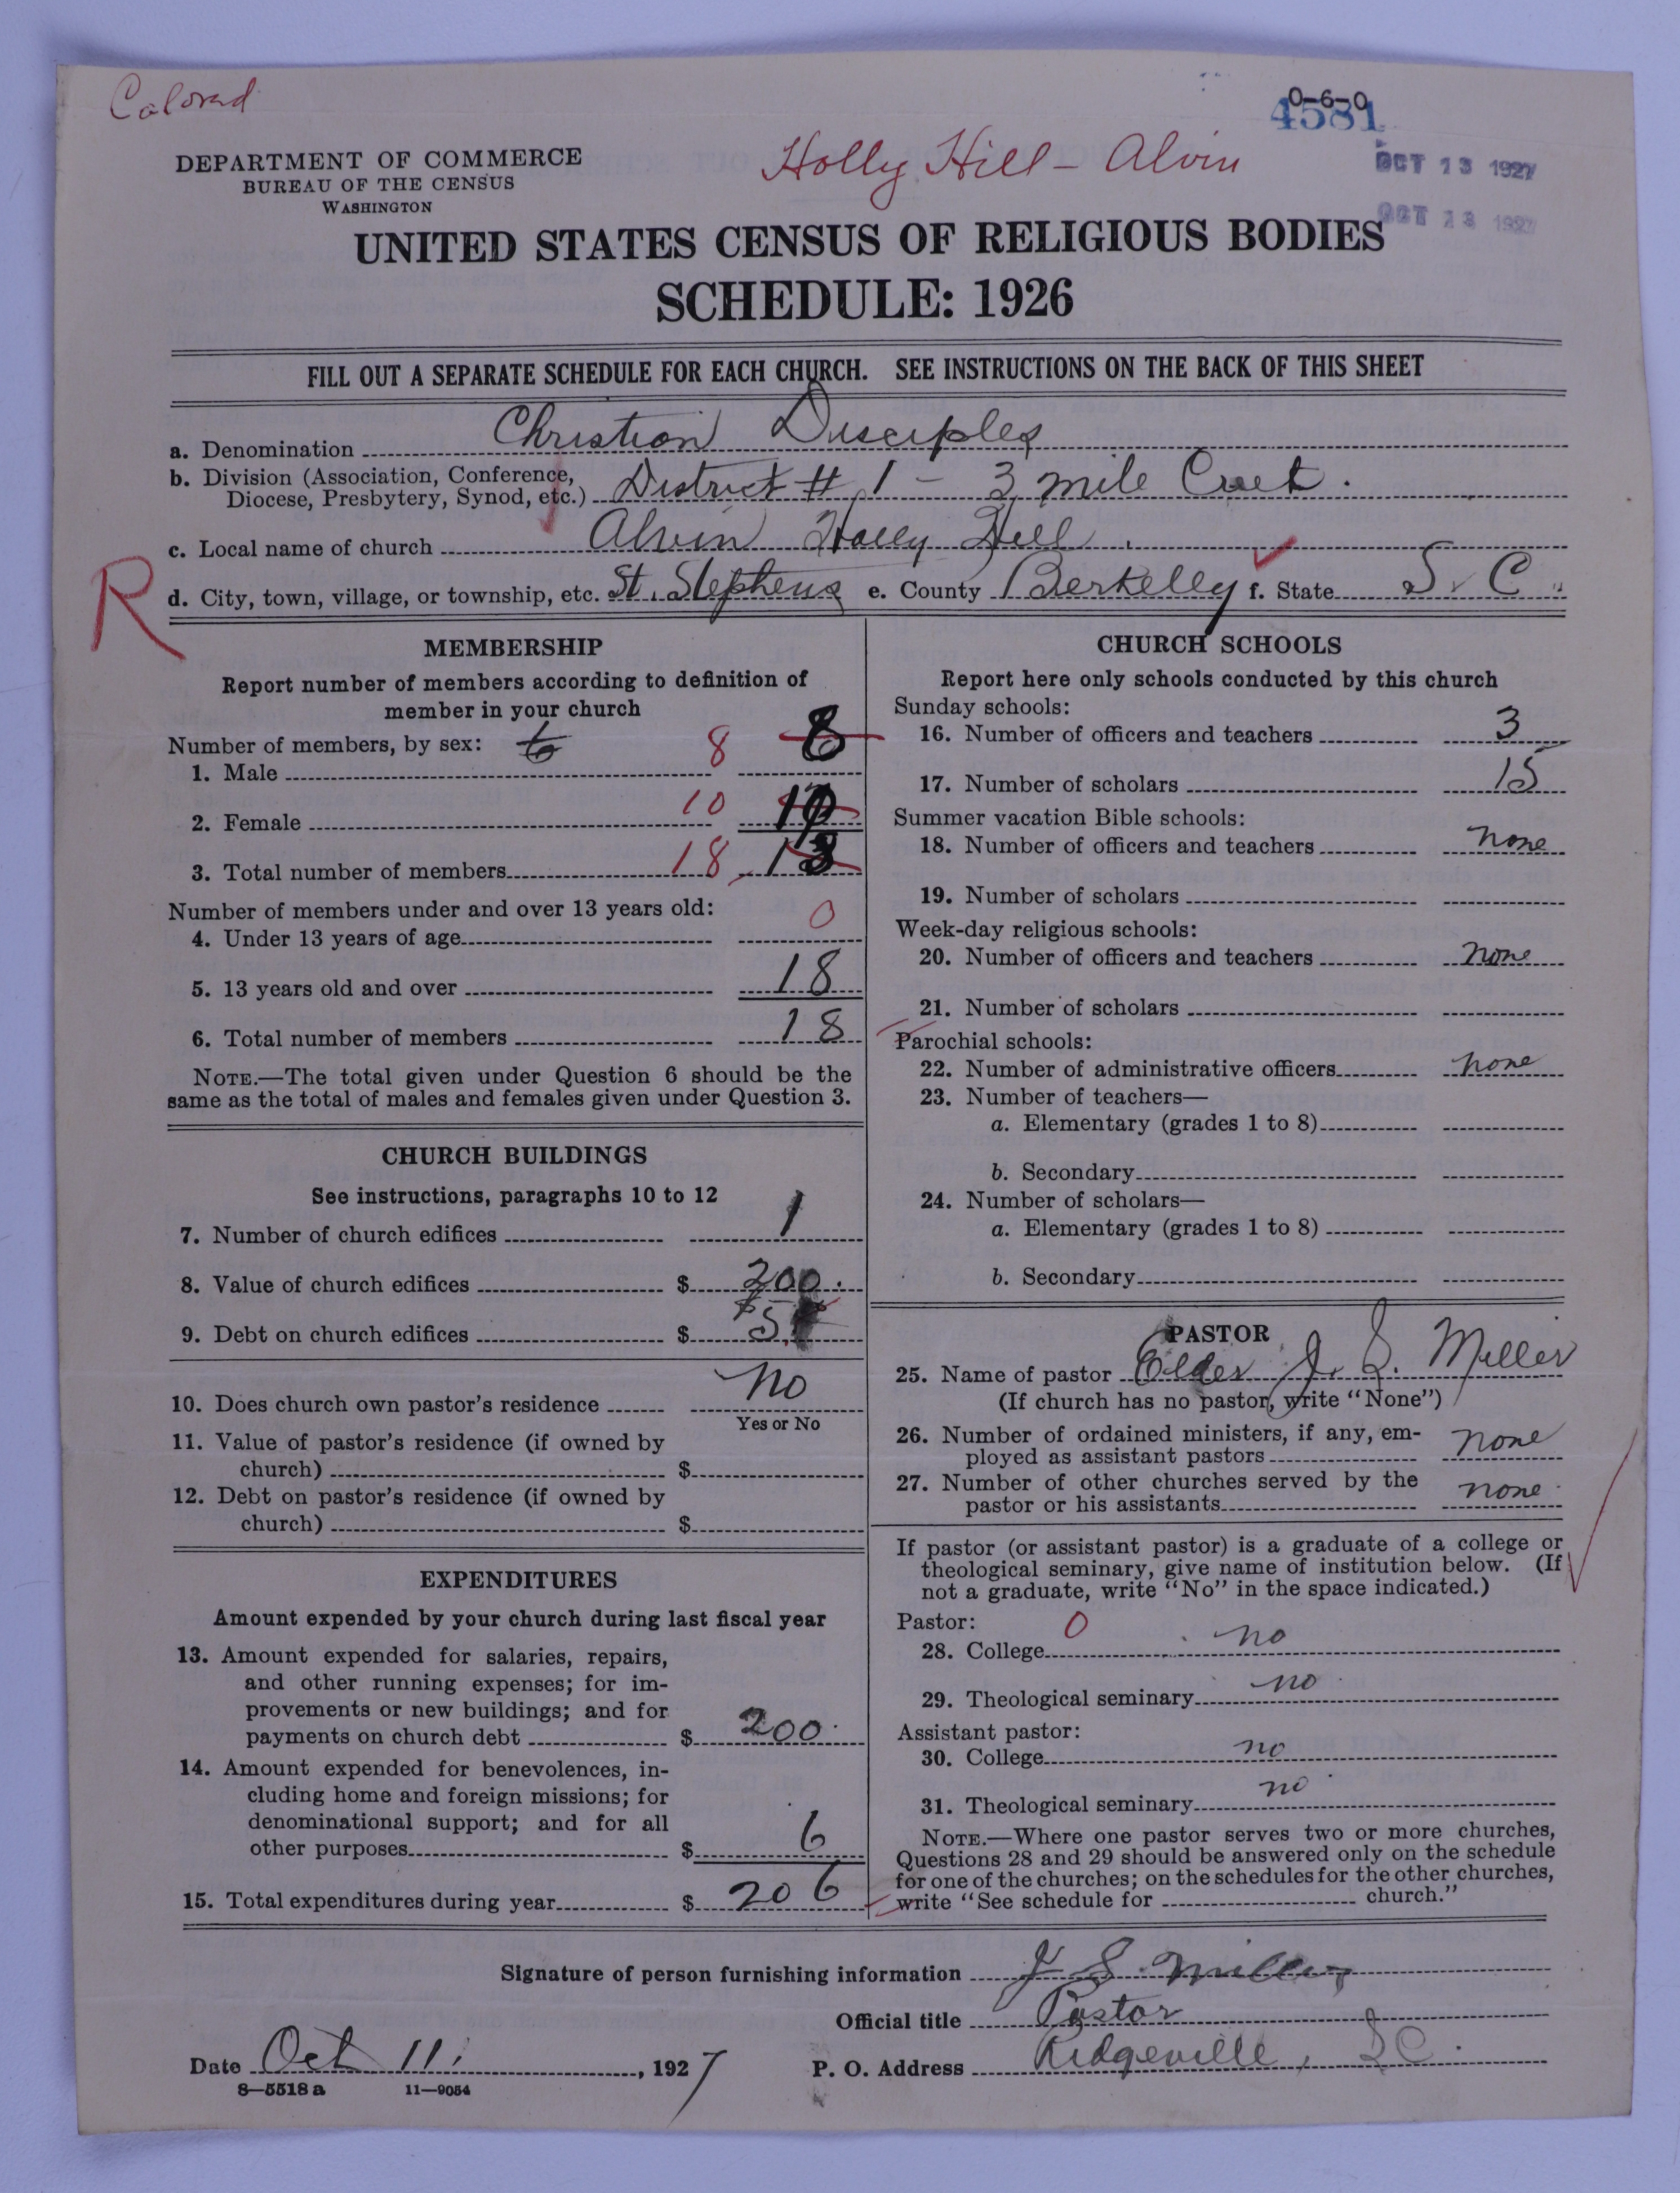 Colored
0-6-0
4581
Holly Hill - Alvin
DEPARTMENT OF COMMERCE
BUREAU OF THE CENSUS
WASHINGTON
OCT 13 1927
OCT 13 1927
UNITED STATES CENSUS OF RELIGIOUS BODIES
SCHEDULE: 1926
FILL OUT A SEPARATE SCHEDULE FOR EACH CHURCH. SEE INSTRUCTIONS ON THE BACK OF THIS SHEET
a. Denomination Christian Disciples
b. Division (Association, Conference,
Diocese, Presbytery, Synod, etc.) District # 1 - 3 mile Creek.
c. Local name of church Alvin Holly Hill.
R
d. City, town, village, or township, etc. St. Stephens e. County Berkelley f. State S. C.
MEMBERSHIP
Report number of members according to definition of
member in your church
Number of members, by sex: 6
1. Male 8 8
2. Female 10 10
3. Total number of members 18 18
Number of members under and over 13 years old:
4. Under 13 years of age 0
5. 13 years old and over 18
6. Total number of members 18
NOTE.—The total given under Question 6 should be the
same as the total of males and females given under Question 3.
CHURCH BUILDINGS
See instructions, paragraphs 10 to 12
7. Number of church edifices 1
8. Value of church edifices $ 200.
9. Debt on church edifices $
10. Does church own pastor's residence no
Yes or No
11. Value of pastor's residence (if owned by
church) $
12. Debt on pastor's residence (if owned by
church) $
EXPENDITURES
Amount expended by your church during last fiscal year
13. Amount expended for salaries, repairs,
and other running expenses; for im-
provements or new buildings; and for
payments on church debt $ 200.
14. Amount expended for benevolences, in-
cluding home and foreign missions; for
denominational support; and for all
other purposes $ 6
15. Total expenditures during year $ 206
CHURCH SCHOOLS
Report here only schools conducted by this church
Sunday schools:
16. Number of officers and teachers 3
17. Number of scholars 15
Summer vacation Bible schools:
18. Number of officers and teachers none
19. Number of scholars
Week-day religious schools:
20. Number of officers and teachers none
21. Number of scholars
Parochial schools:
22. Number of administrative officers none
23. Number of teachers—
a. Elementary (grades 1 to 8)
b. Secondary
24. Number of scholars—
a. Elementary (grades 1 to 8)
b. Secondary
PASTOR
25. Name of pastor Elder J. S. Miller
(If church has no pastor, write "None")
26. Number of ordained ministers, if any, em-
ployed as assistant pastors none
27. Number of other churches served by the
pastor or his assistants none
If pastor (or assistant pastor) is a graduate of a college or
theological seminary, give name of institution below. (If
not a graduate, write "No" in the space indicated.)
Pastor: 0
28. College no
29. Theological seminary no
Assistant pastor:
30. College no
31. Theological seminary no
NOTE.—Where one pastor serves two or more churches,
Questions 28 and 29 should be answered only on the schedule
for one of the churches; on the schedules for the other churches,
write "See schedule for church."
Signature of person furnishing information J S. Miller
Official title Pastor
Date Oct 11, 1927 P. O. Address Ridgeville, S C.
8—5518 a 11—9054